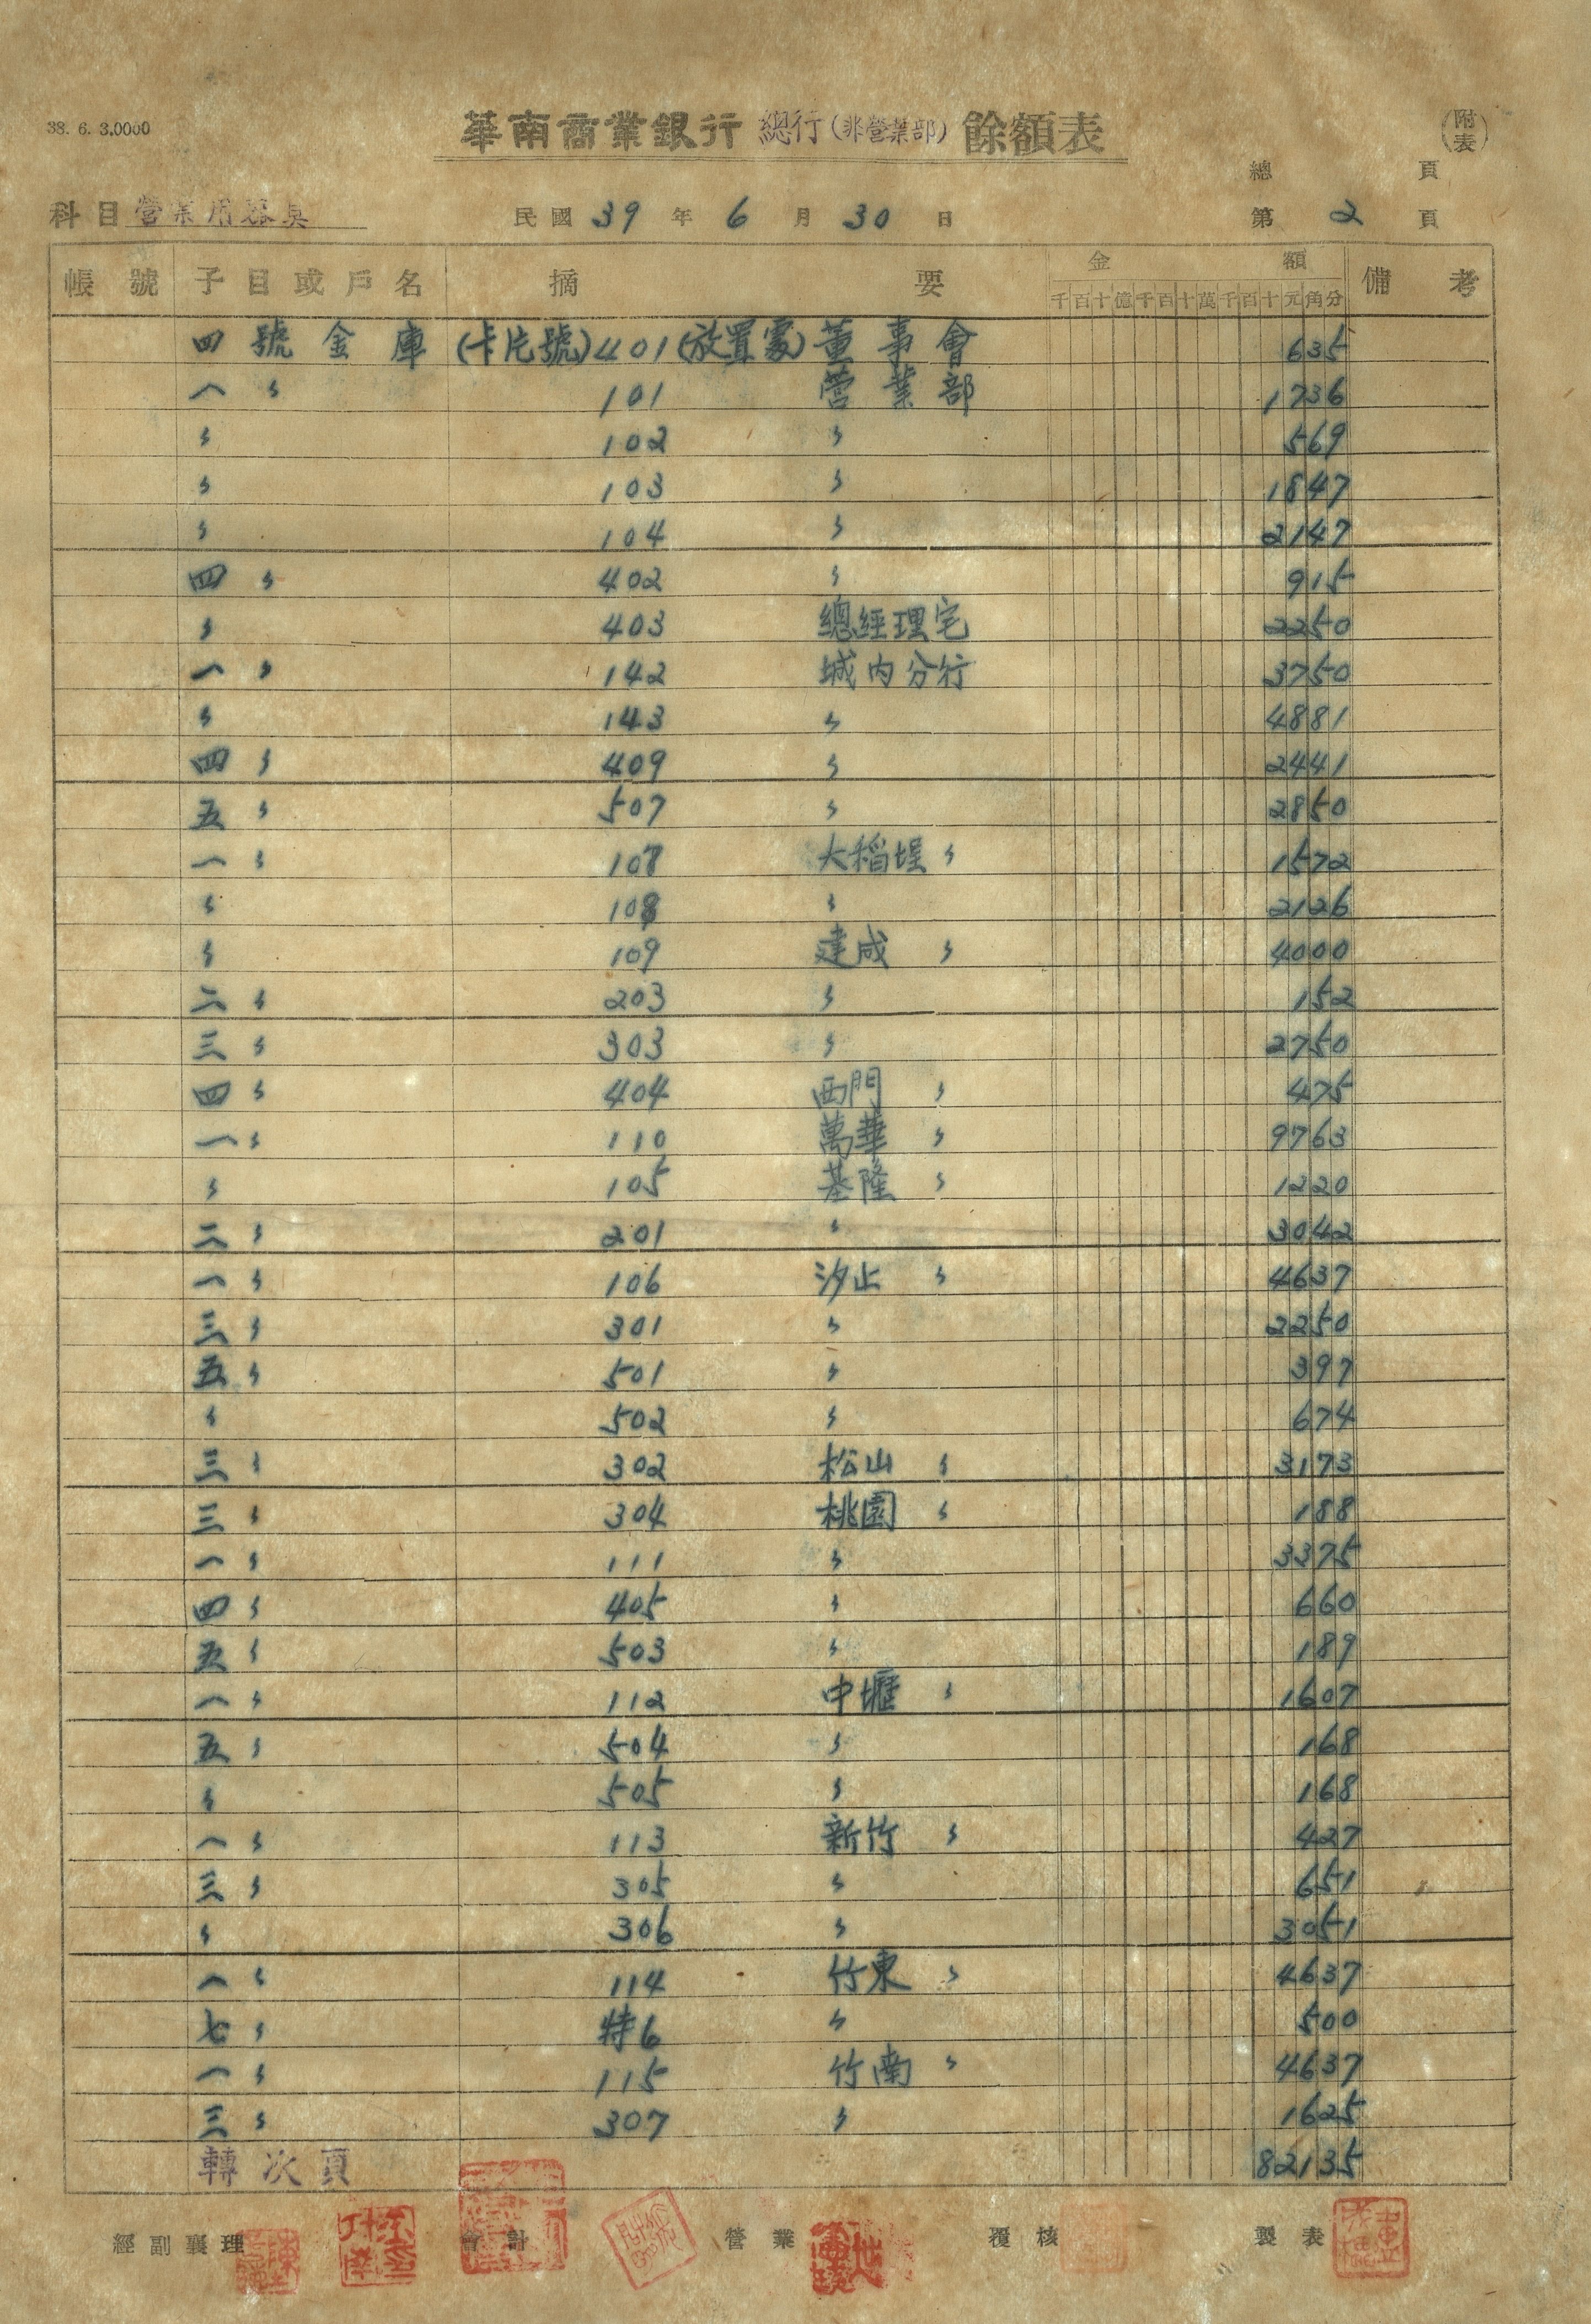 38. 6. 3.0000
華南商業銀行 總行(非營業部) 餘額表
(附表)
總 頁
科目 營業用器具 民國 39 年 6 月 30 日 第 2 頁
帳號 子目或戶名 摘要 金額 備考
千百十億千百十萬千百十元角分
四號金庫 (卡片號)401 (放置處)董事會 635
一 〻 101 營業部 1736
〻 102 〻 569
〻 103 〻 1847
〻 104 〻 2147
四 〻 402 〻 915
〻 403 總經理宅 2250
一 〻 142 城內分行 3750
〻 143 〻 4881
四 〻 409 〻 2441
五 〻 507 〻 2850
一 〻 107 大稻埕 〻 1572
〻 108 〻 2126
〻 109 建成 〻 4000
二 〻 203 〻 152
三 〻 303 〻 2750
四 〻 404 西門 〻 475
一 〻 110 萬華 〻 9763
〻 105 基隆 〻 1220
二 〻 201 〻 3042
一 〻 106 汐止 〻 4637
三 〻 301 〻 2250
五 〻 501 〻 397
〻 502 〻 674
三 〻 302 松山 〻 3173
三 〻 304 桃園 〻 188
一 〻 111 〻 3375
四 〻 405 〻 660
五 〻 503 〻 189
一 〻 112 中壢 〻 1607
五 〻 504 〻 168
〻 505 〻 168
一 〻 113 新竹 〻 427
三 〻 305 〻 651
〻 306 〻 3051
一 〻 114 竹東 〻 4637
七 〻 特6 〻 500
一 〻 115 竹南 〻 4637
三 〻 307 〻 1625
轉次頁 82135
經副襄理 會計 營業 覆核 製表